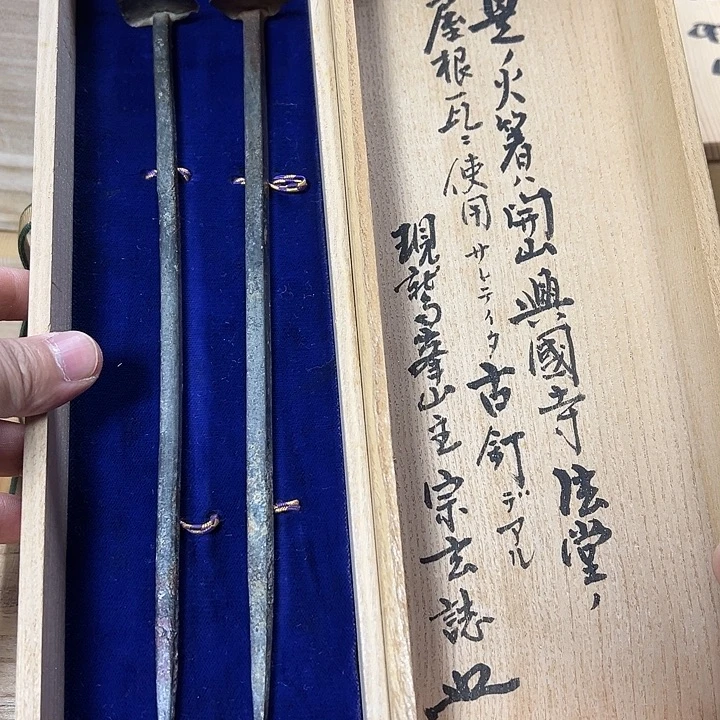 是ノ火箸ハ開山興國寺法堂ノ
屋根瓦ニ使用サレテイタ古釘デアル
現鷲峯山主宗玄誌